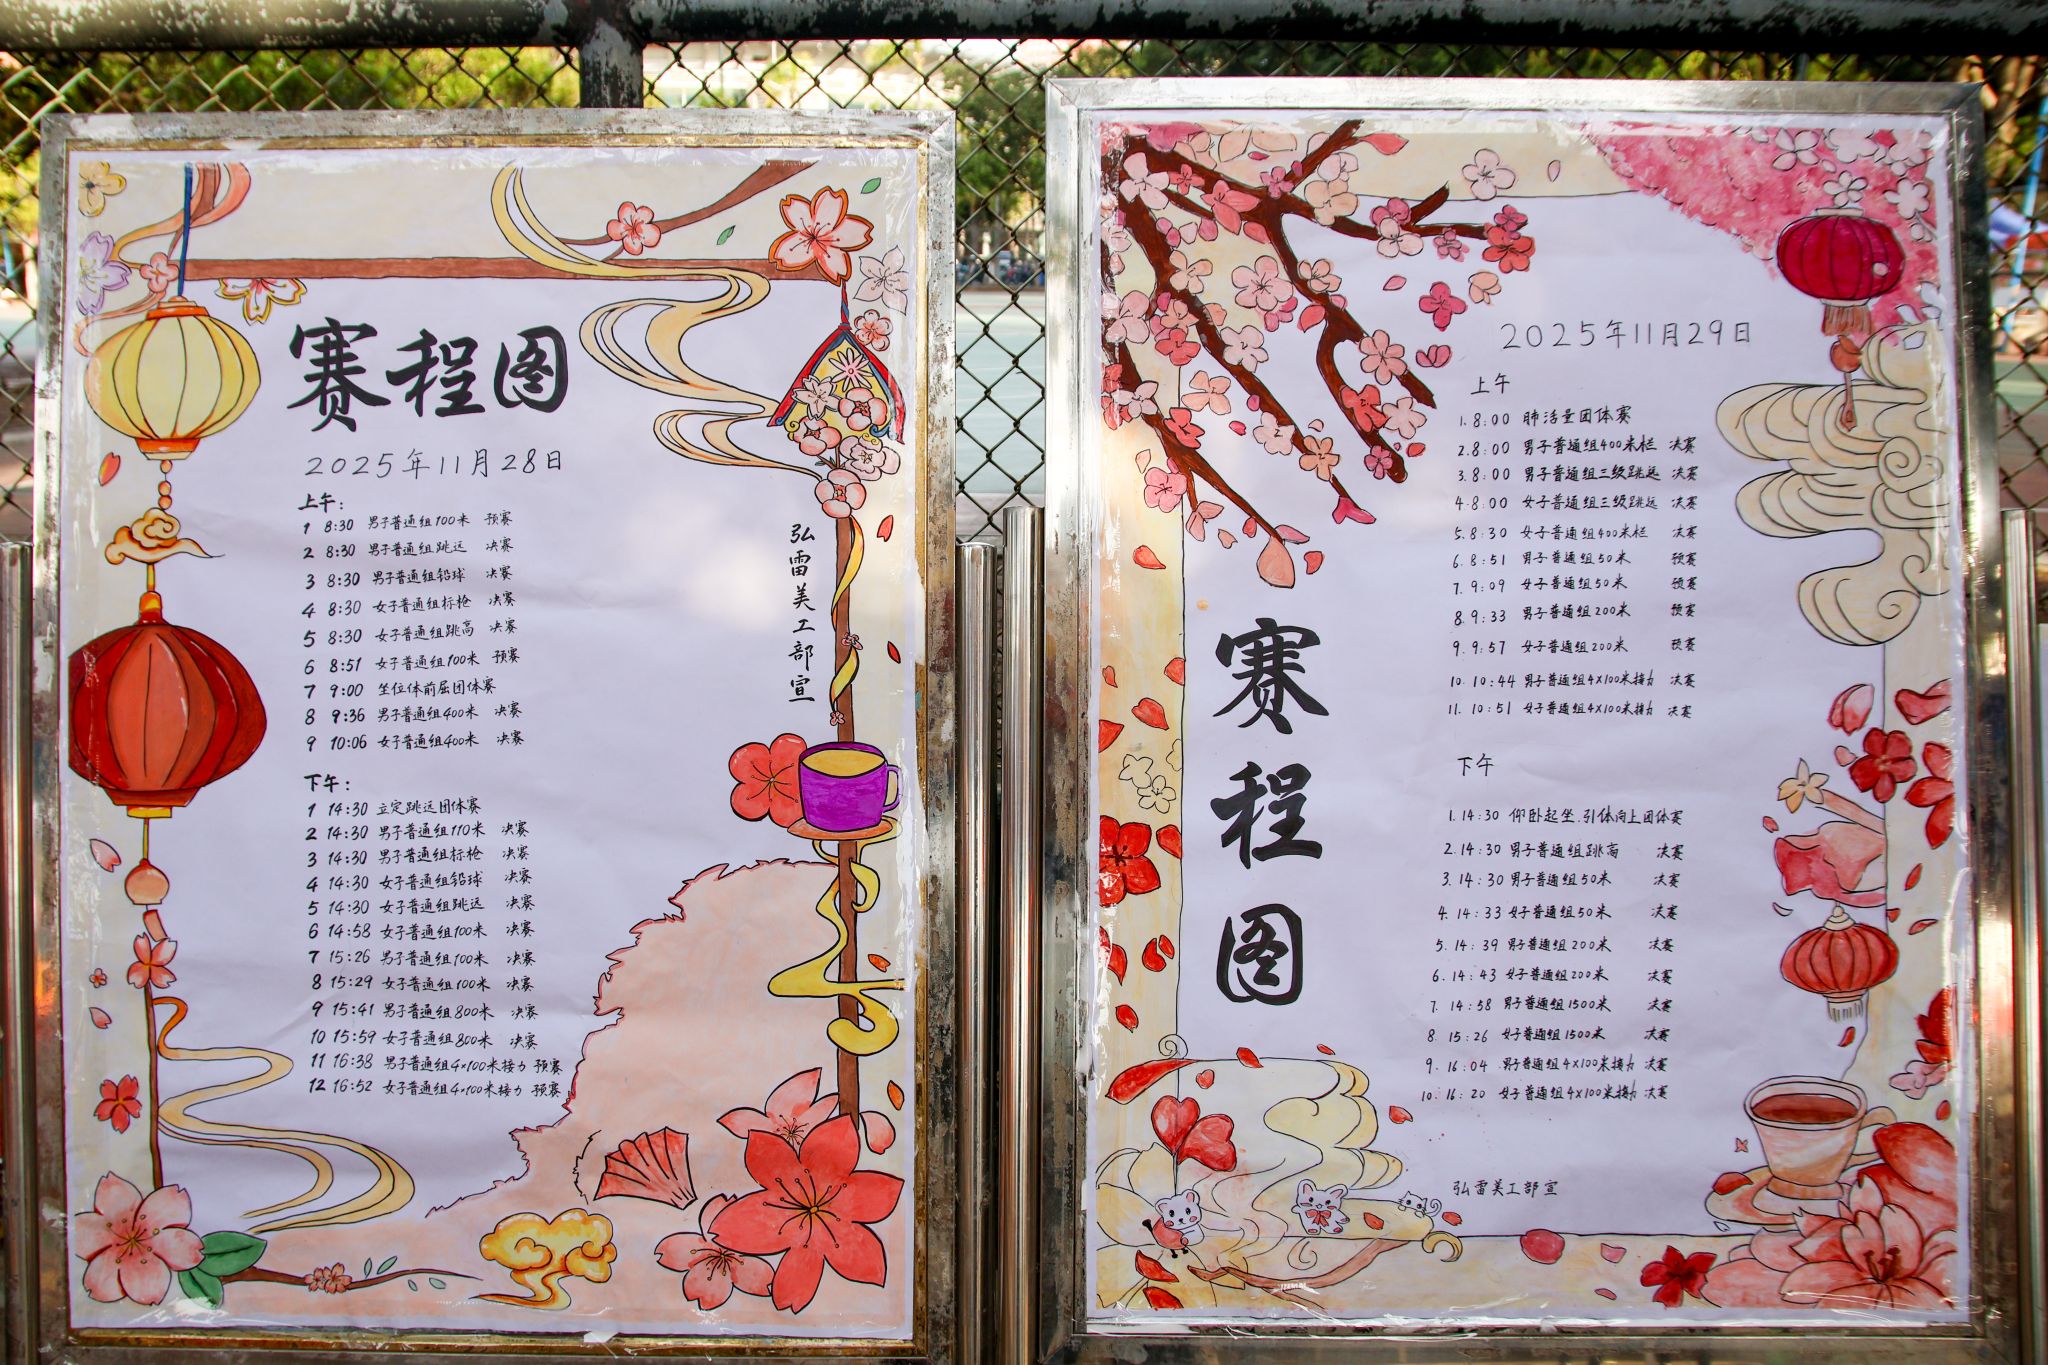 赛程图
2025年11月28日
上午：
1 8:30 男子普通组100米 预赛
2 8:30 男子普通组跳远 决赛
3 8:30 男子普通组铅球 决赛
4 8:30 女子普通组标枪 决赛
5 8:30 女子普通组跳高 决赛
6 8:51 女子普通组100米 预赛
7 9:00 坐位体前屈团体赛
8 9:36 男子普通组400米 决赛
9 10:06 女子普通组400米 决赛
下午：
1 14:30 立定跳远团体赛
2 14:30 男子普通组110米 决赛
3 14:30 男子普通组标枪 决赛
4 14:30 女子普通组铅球 决赛
5 14:30 女子普通组跳远 决赛
6 14:58 女子普通组100米 决赛
7 15:26 男子普通组100米 决赛
8 15:29 女子普通组100米 决赛
9 15:41 男子普通组800米 决赛
10 15:59 女子普通组800米 决赛
11 16:38 男子普通组4×100米接力 预赛
12 16:52 女子普通组4×100米接力 预赛
弘雷美工部宣
赛程图
2025年11月29日
上午
1. 8:00 肺活量团体赛
2. 8:00 男子普通组400米栏 决赛
3. 8:00 男子普通组三级跳远 决赛
4. 8:00 女子普通组三级跳远 决赛
5. 8:30 女子普通组400米栏 决赛
6. 8:51 男子普通组50米 预赛
7. 9:09 女子普通组50米 预赛
8. 9:33 男子普通组200米 预赛
9. 9:57 女子普通组200米 预赛
10. 10:44 男子普通组4×100米接力 决赛
11. 10:51 女子普通组4×100米接力 决赛
下午
1. 14:30 仰卧起坐.引体向上团体赛
2. 14:30 男子普通组跳高 决赛
3. 14:30 男子普通组50米 决赛
4. 14:33 女子普通组50米 决赛
5. 14:39 男子普通组200米 决赛
6. 14:43 女子普通组200米 决赛
7. 14:58 男子普通组1500米 决赛
8. 15:26 女子普通组1500米 决赛
9. 16:04 男子普通组4×100米接力 决赛
10. 16:20 女子普通组4×100米接力 决赛
弘雷美工部宣